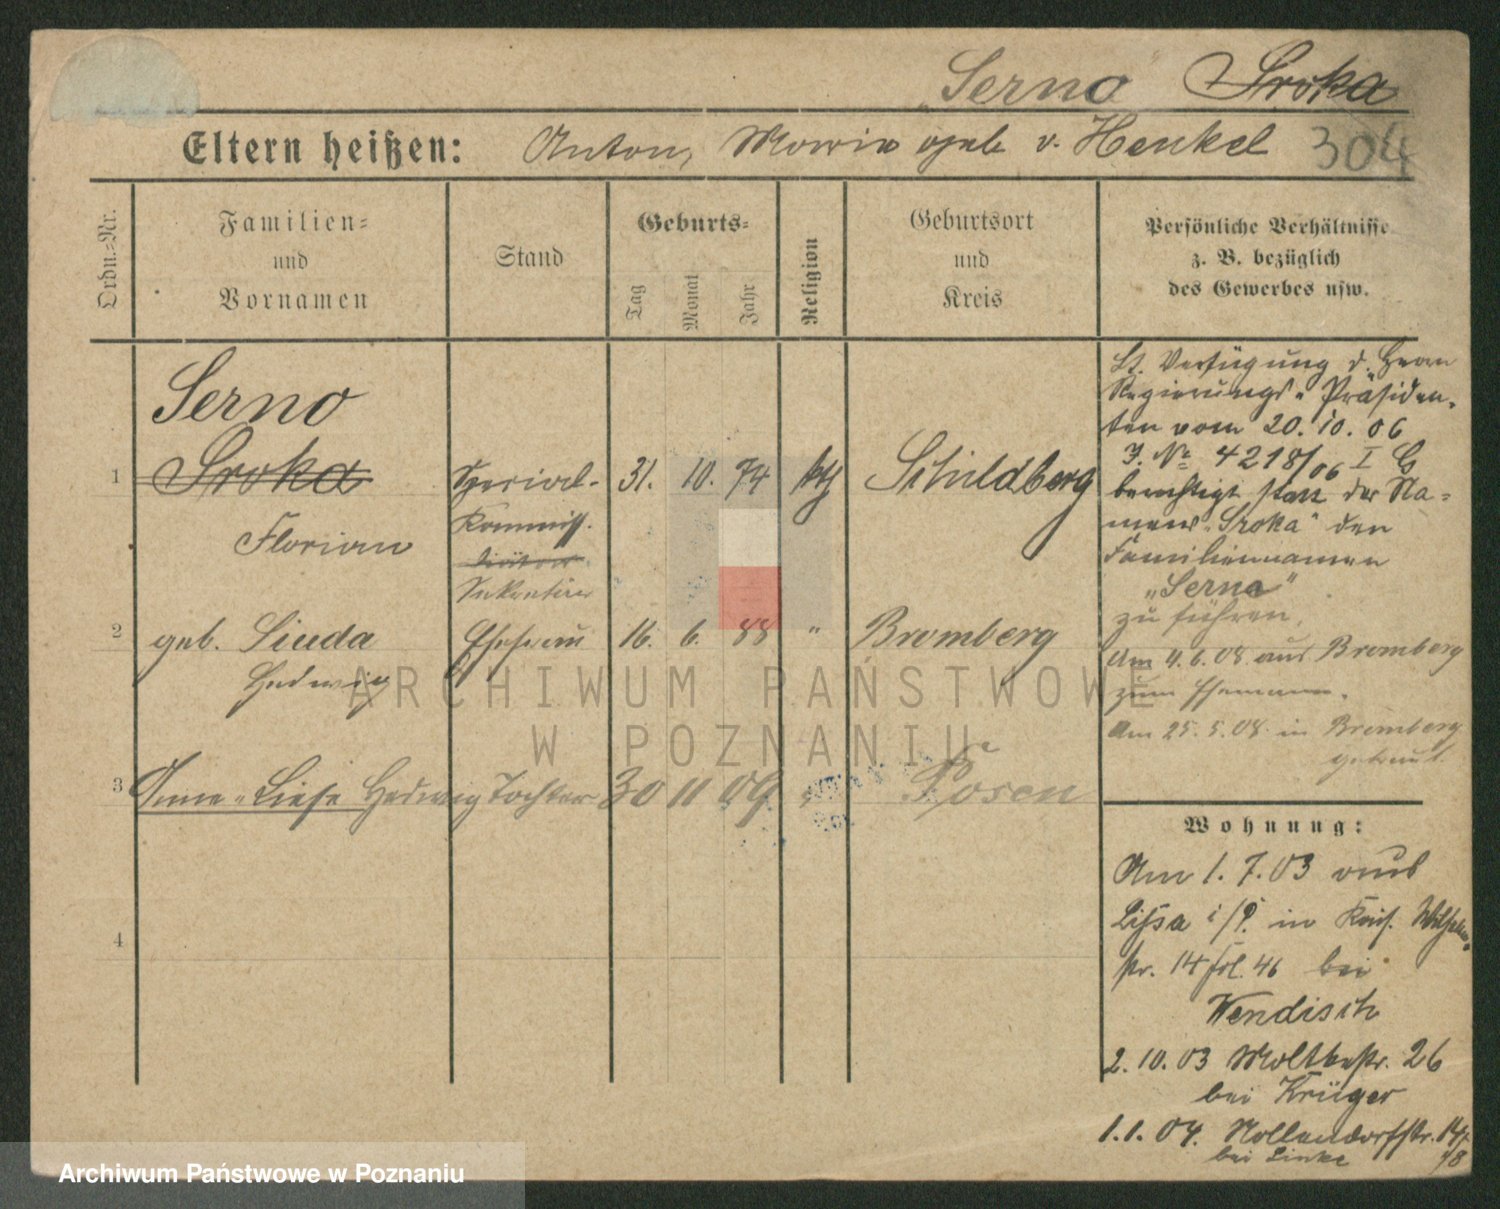 "Serno" Sroka
Eltern heißen: Anton, Marie geb v. Henkel 304
Ordn.-Nr.
Familien-
und
Vornamen
Stand
Geburts-
Tag
Monat
Jahr
Religion
Geburtsort
und
Kreis
Persönliche Verhältnisse
z. B. bezüglich
des Gewerbes usw.
Serno
1 Sroka Spezial- 31. 10. 74 kth Schildberg
Florian Kommiss.
Sekretär
2 geb. Siuda Ehefrau 16. 6. 88 " Bromberg
Hedwig
3 Anne-Liese Hedwig Tochter 30 11 09 " Posen
4
Lt. Verfügung d. Herrn
Regierungs-Präsiden-
ten vom 20. 10. 06
J. No 4218/06 I G
berechtigt statt des Na-
mens "Sroka" den
Familiennamen
"Serno"
zu führen.
Am 4.6.08 aus Bromberg
zum Ehemann.
Am 25.5.08 in Bromberg
getraut.
Wohnung:
Am 1.7.03 aus
Lissa i/P. in Kais. Wilhelm-
str. 14 bei
Wendisch
2.10.03 Moltkestr. 26
bei Krüger
1.1.04. Nollendorfstr. 14
bei Linke
ARCHIWUM PAŃSTWOWE
W POZNANIU
Archiwum Państwowe w Poznaniu